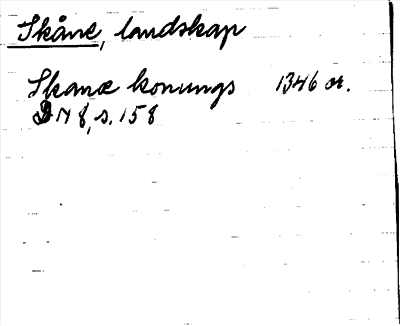 Skåne, landskap
Skanæ konungs 1346 or.
DN 8, s. 158